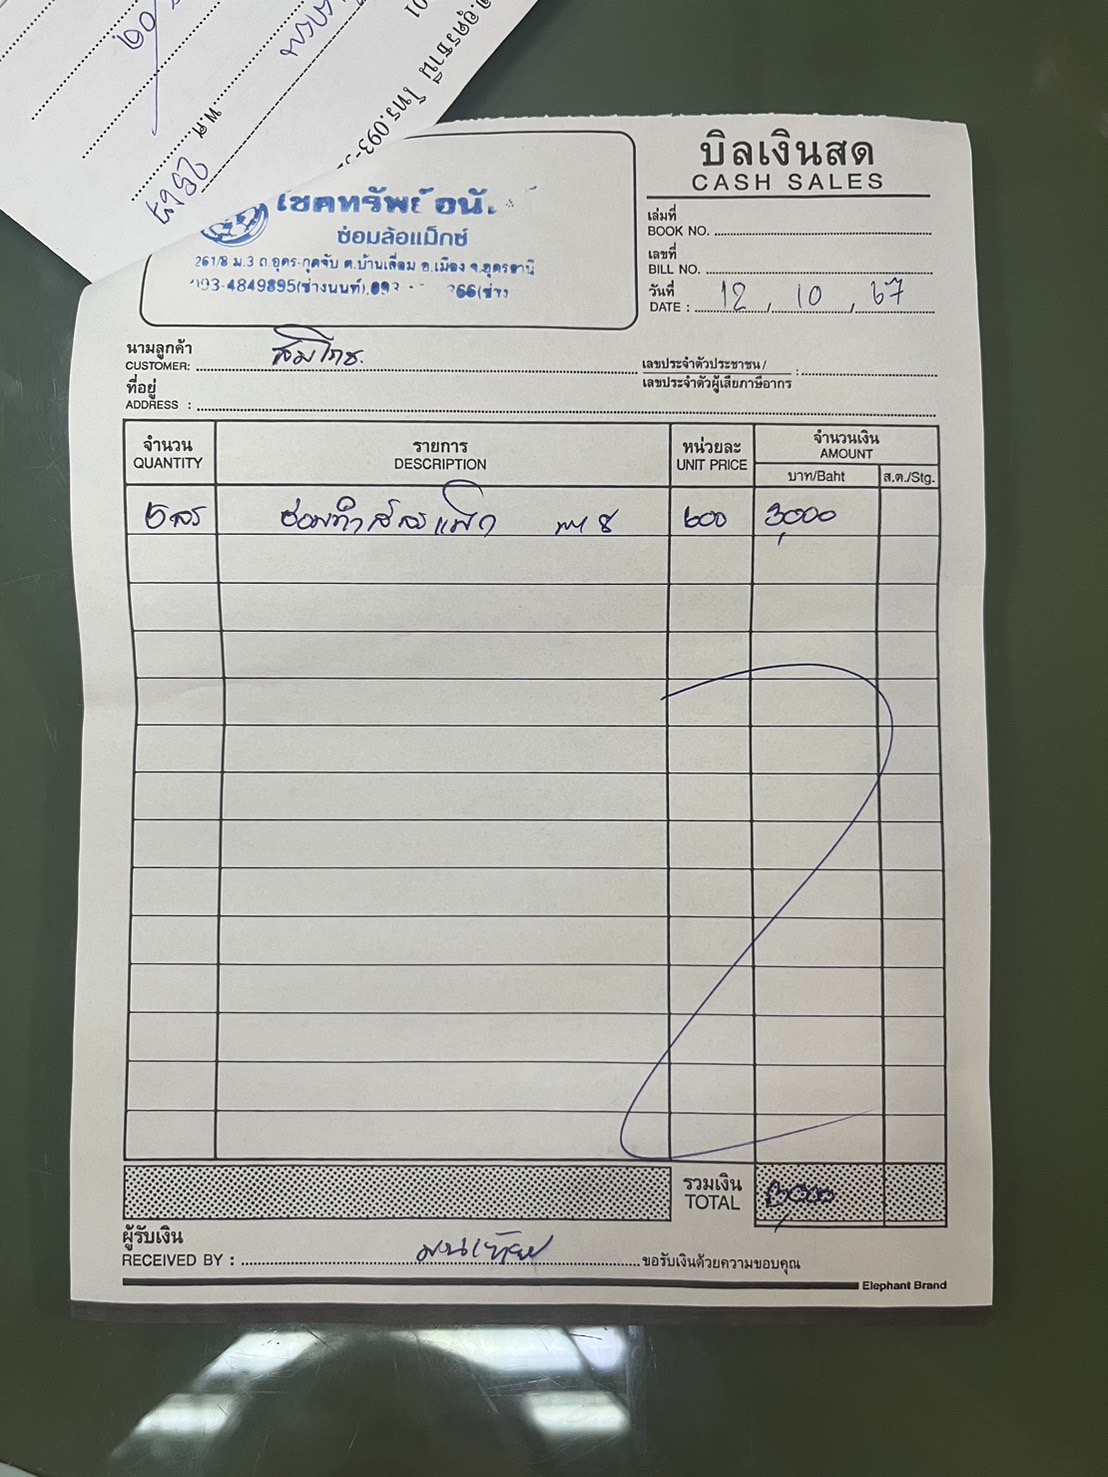 จ.อุดรธานี โทร.093-
01
พ.ศ. 2567
บิลเงินสด
CASH SALES
โชคทรัพย์อนั
ซ่อมล้อแม็กซ์
261/8 ม.3 ถ.อุดร-กุดจับ ต.บ้านเลื่อม อ.เมือง จ.อุดรธานี
093-4849895(ช่างนนท์),093 366(ช่าง
เล่มที่
BOOK NO.
เลขที่
BILL NO.
วันที่
DATE : 12 / 10 / 67
นามลูกค้า
CUSTOMER:
เลขประจำตัวประชาชน/
เลขประจำตัวผู้เสียภาษีอากร :
ที่อยู่
ADDRESS :
จำนวน
QUANTITY
รายการ
DESCRIPTION
หน่วยละ
UNIT PRICE
จำนวนเงิน
AMOUNT
บาท/Baht
ส.ต./Stg.
ซ่อมทำสี 600 3,000
รวมเงิน
TOTAL 3,000
ผู้รับเงิน
RECEIVED BY : ขอรับเงินด้วยความขอบคุณ
Elephant Brand